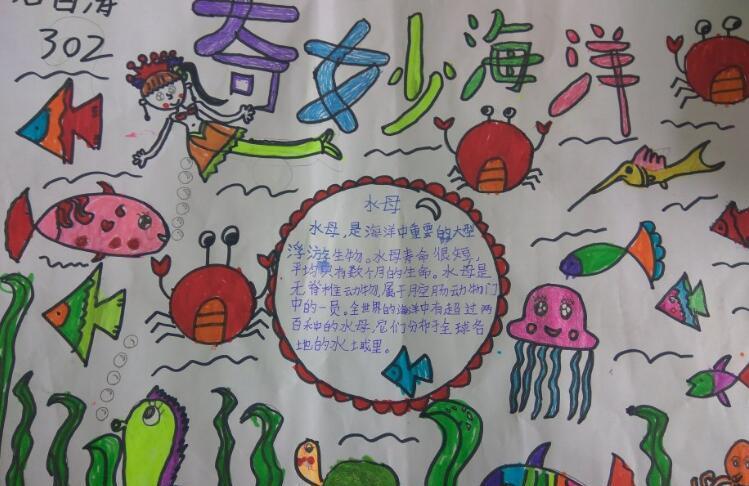 302
奇妙海洋
水母
水母，是海洋中重要的大型
浮游生物。水母寿命很短，
平均只有数个月的生命。水母是
无脊椎动物，属于腔肠动物门
中的一员。全世界的海洋中有超过两
百种的水母，它们分布于全球各
地的水域里。